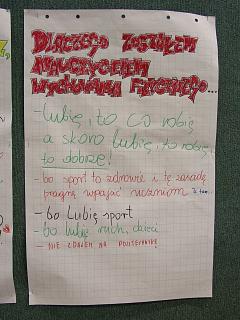 DLACZEGO ZOSTAŁEM
NAUCZYCIELEM
WYCHOWANIA FIZYCZNEGO...
- Lubię, to co robię
a skoro lubię, to robię
to dobrze!
- bo sport to zdrowie i tę zasadę
pragnę wpajać uczniom
- bo Lubię sport
- bo lubię ruch, dzieci
- NIE ZDAŁEM NA POLITECHNIKĘ